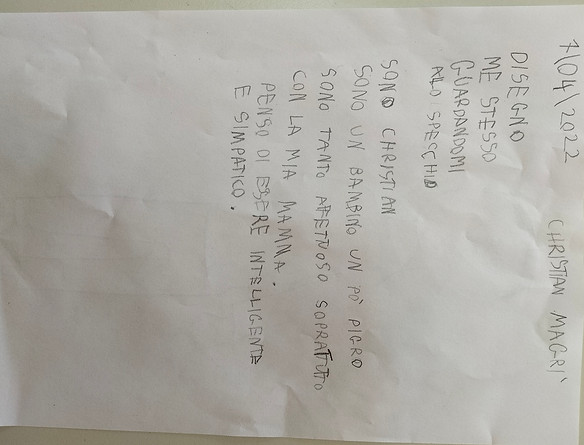 7/04/2022 CHRISTIAN MAGRI'
DISEGNO
ME STESSO
GUARDANDOMI
ALLO SPECCHIO
SONO CHRISTIAN
SONO UN BAMBINO UN PÒ PIGRO
SONO TANTO AFFETUOSO SOPRATTUTTO
CON LA MIA MAMMA.
PENSO DI ESSERE INTELLIGENTE
E SIMPATICO.